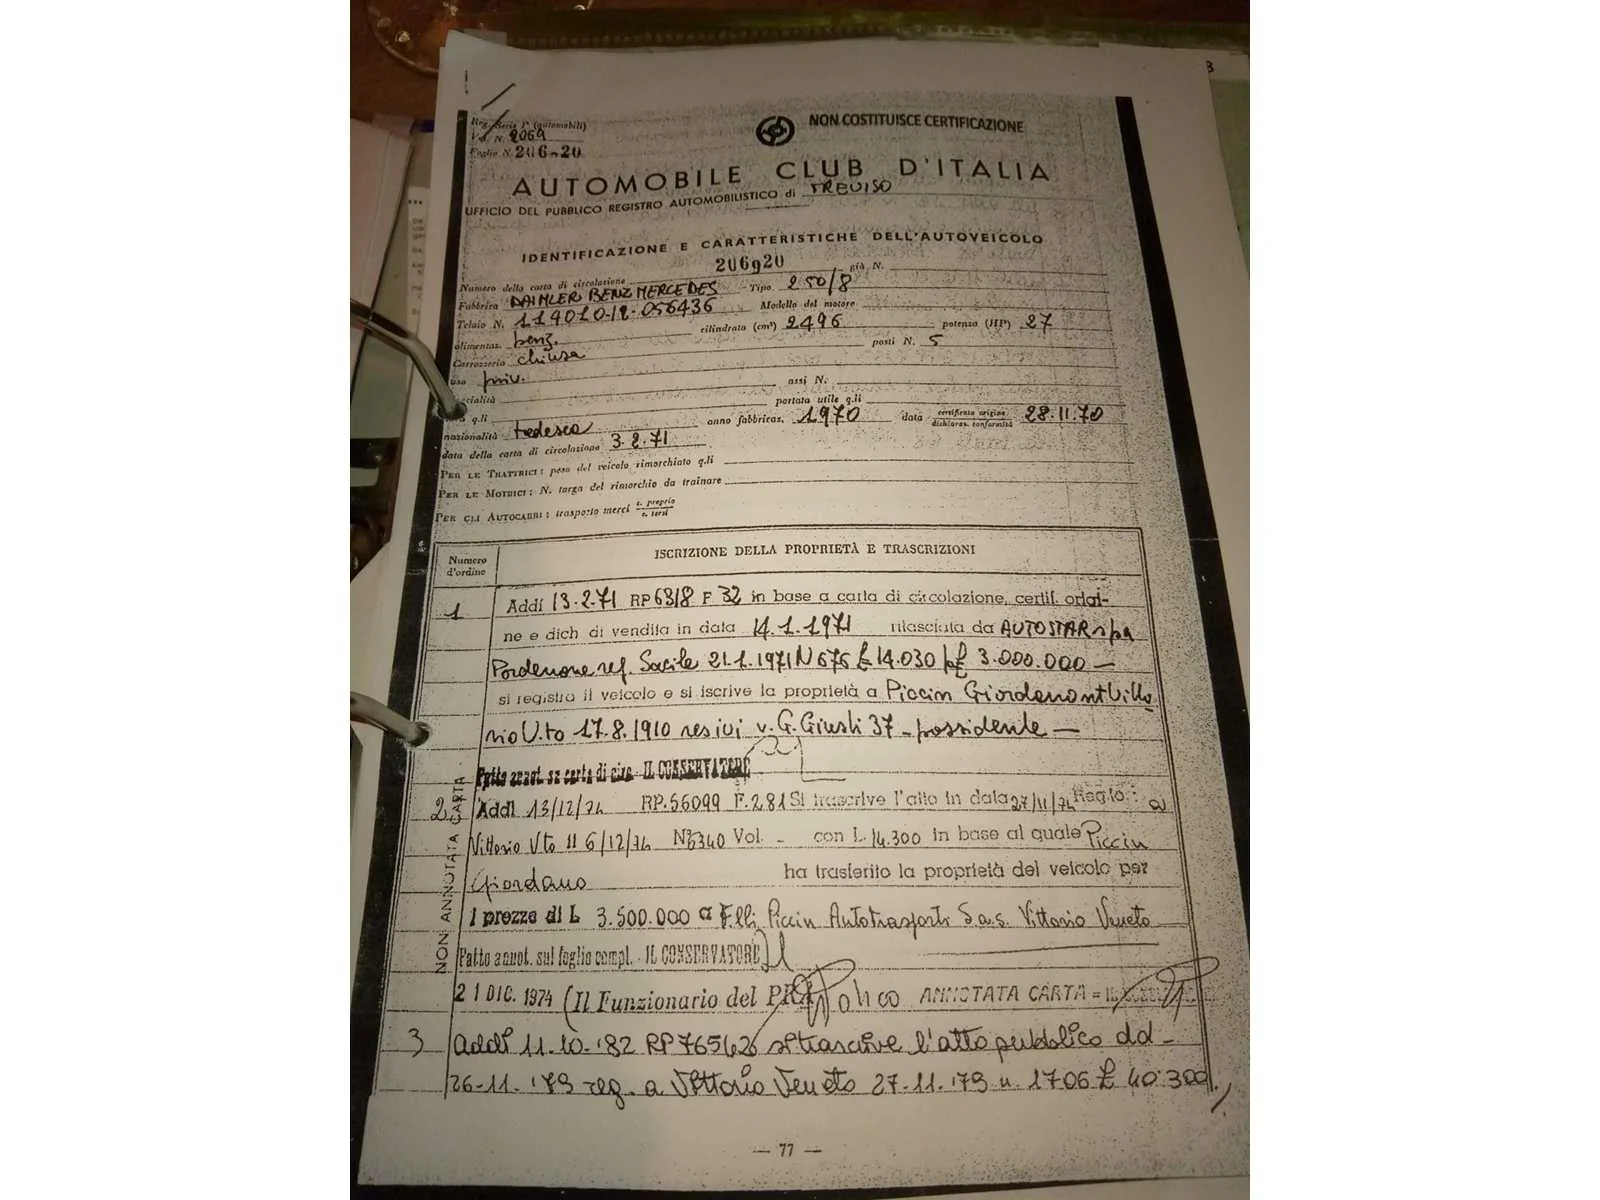 Reg. Serie P. (automobili)
Vol. N. 2069
Foglio N. 206-20
NON COSTITUISCE CERTIFICAZIONE
AUTOMOBILE CLUB D'ITALIA
UFFICIO DEL PUBBLICO REGISTRO AUTOMOBILISTICO di TREVISO
IDENTIFICAZIONE E CARATTERISTICHE DELL'AUTOVEICOLO
Numero della carta di circolazione 206920 già N.
Fabbrica DAIMLER BENZ MERCEDES Tipo 250/8
Telaio N. 114010-12-056436 Modello del motore
alimentaz. benz. cilindrata (cm³) 2496 potenza (HP) 27
Carrozzeria chiusa posti N. 5
uso priv. assi N.
cialità portata utile q.li
q.li
nazionalità tedesca anno fabbricaz. 1970 data certificato origine dichiaraz. conformità 28.11.70
data della carta di circolazione 3.2.71
PER LE TRATTRICI: peso del veicolo rimorchiato q.li
PER LE MOTRICI: N. targa del rimorchio da trainare
PER GLI AUTOCARRI: trasporto merci c. proprio c. terzi
Numero d'ordine
ISCRIZIONE DELLA PROPRIETÀ E TRASCRIZIONI
1 Addì 13.2.71 RP 6318 F 32 in base a carta di circolazione, certif. origi-
ne e dich di vendita in data 14.1.1971 rilasciata da AUTOSTAR spa
Pordenone reg. Sacile 21.1.1971 N 676 £ 14.030 p£ 3.000.000 —
si registra il veicolo e si iscrive la proprietà a Piccin Giordano nt Vitto
rio V.to 17.8.1910 res ivi v. G. Giusti 37 - possidente —
Fatto annot. su carta di circ. IL CONSERVATORE
NON ANNOTATA CARTA
2 Addì 13/12/74 RP. 56099 F. 281 Si trascrive l'atto in data 27/11/74 Regto: a
Vittorio Vto il 6/12/74 N 6340 Vol. - con L. 14.300 in base al quale Piccin
Giordano ha trasferito la proprietà del veicolo per
l prezzo di L 3.500.000 a F.lli Piccin Autotrasporti S.a.s. Vittorio Veneto
Fatto annot. sul foglio compl. - IL CONSERVATORE
21 DIC. 1974 (Il Funzionario del PRA) ANNOTATA CARTA =
3 Addì 11.10.'82 RP 76562 si trascrive l'atto pubblico dd-
26-11-'79 reg. a Vittorio Veneto 27.11.'79 n. 1706 £ 40.300,
— 77 —